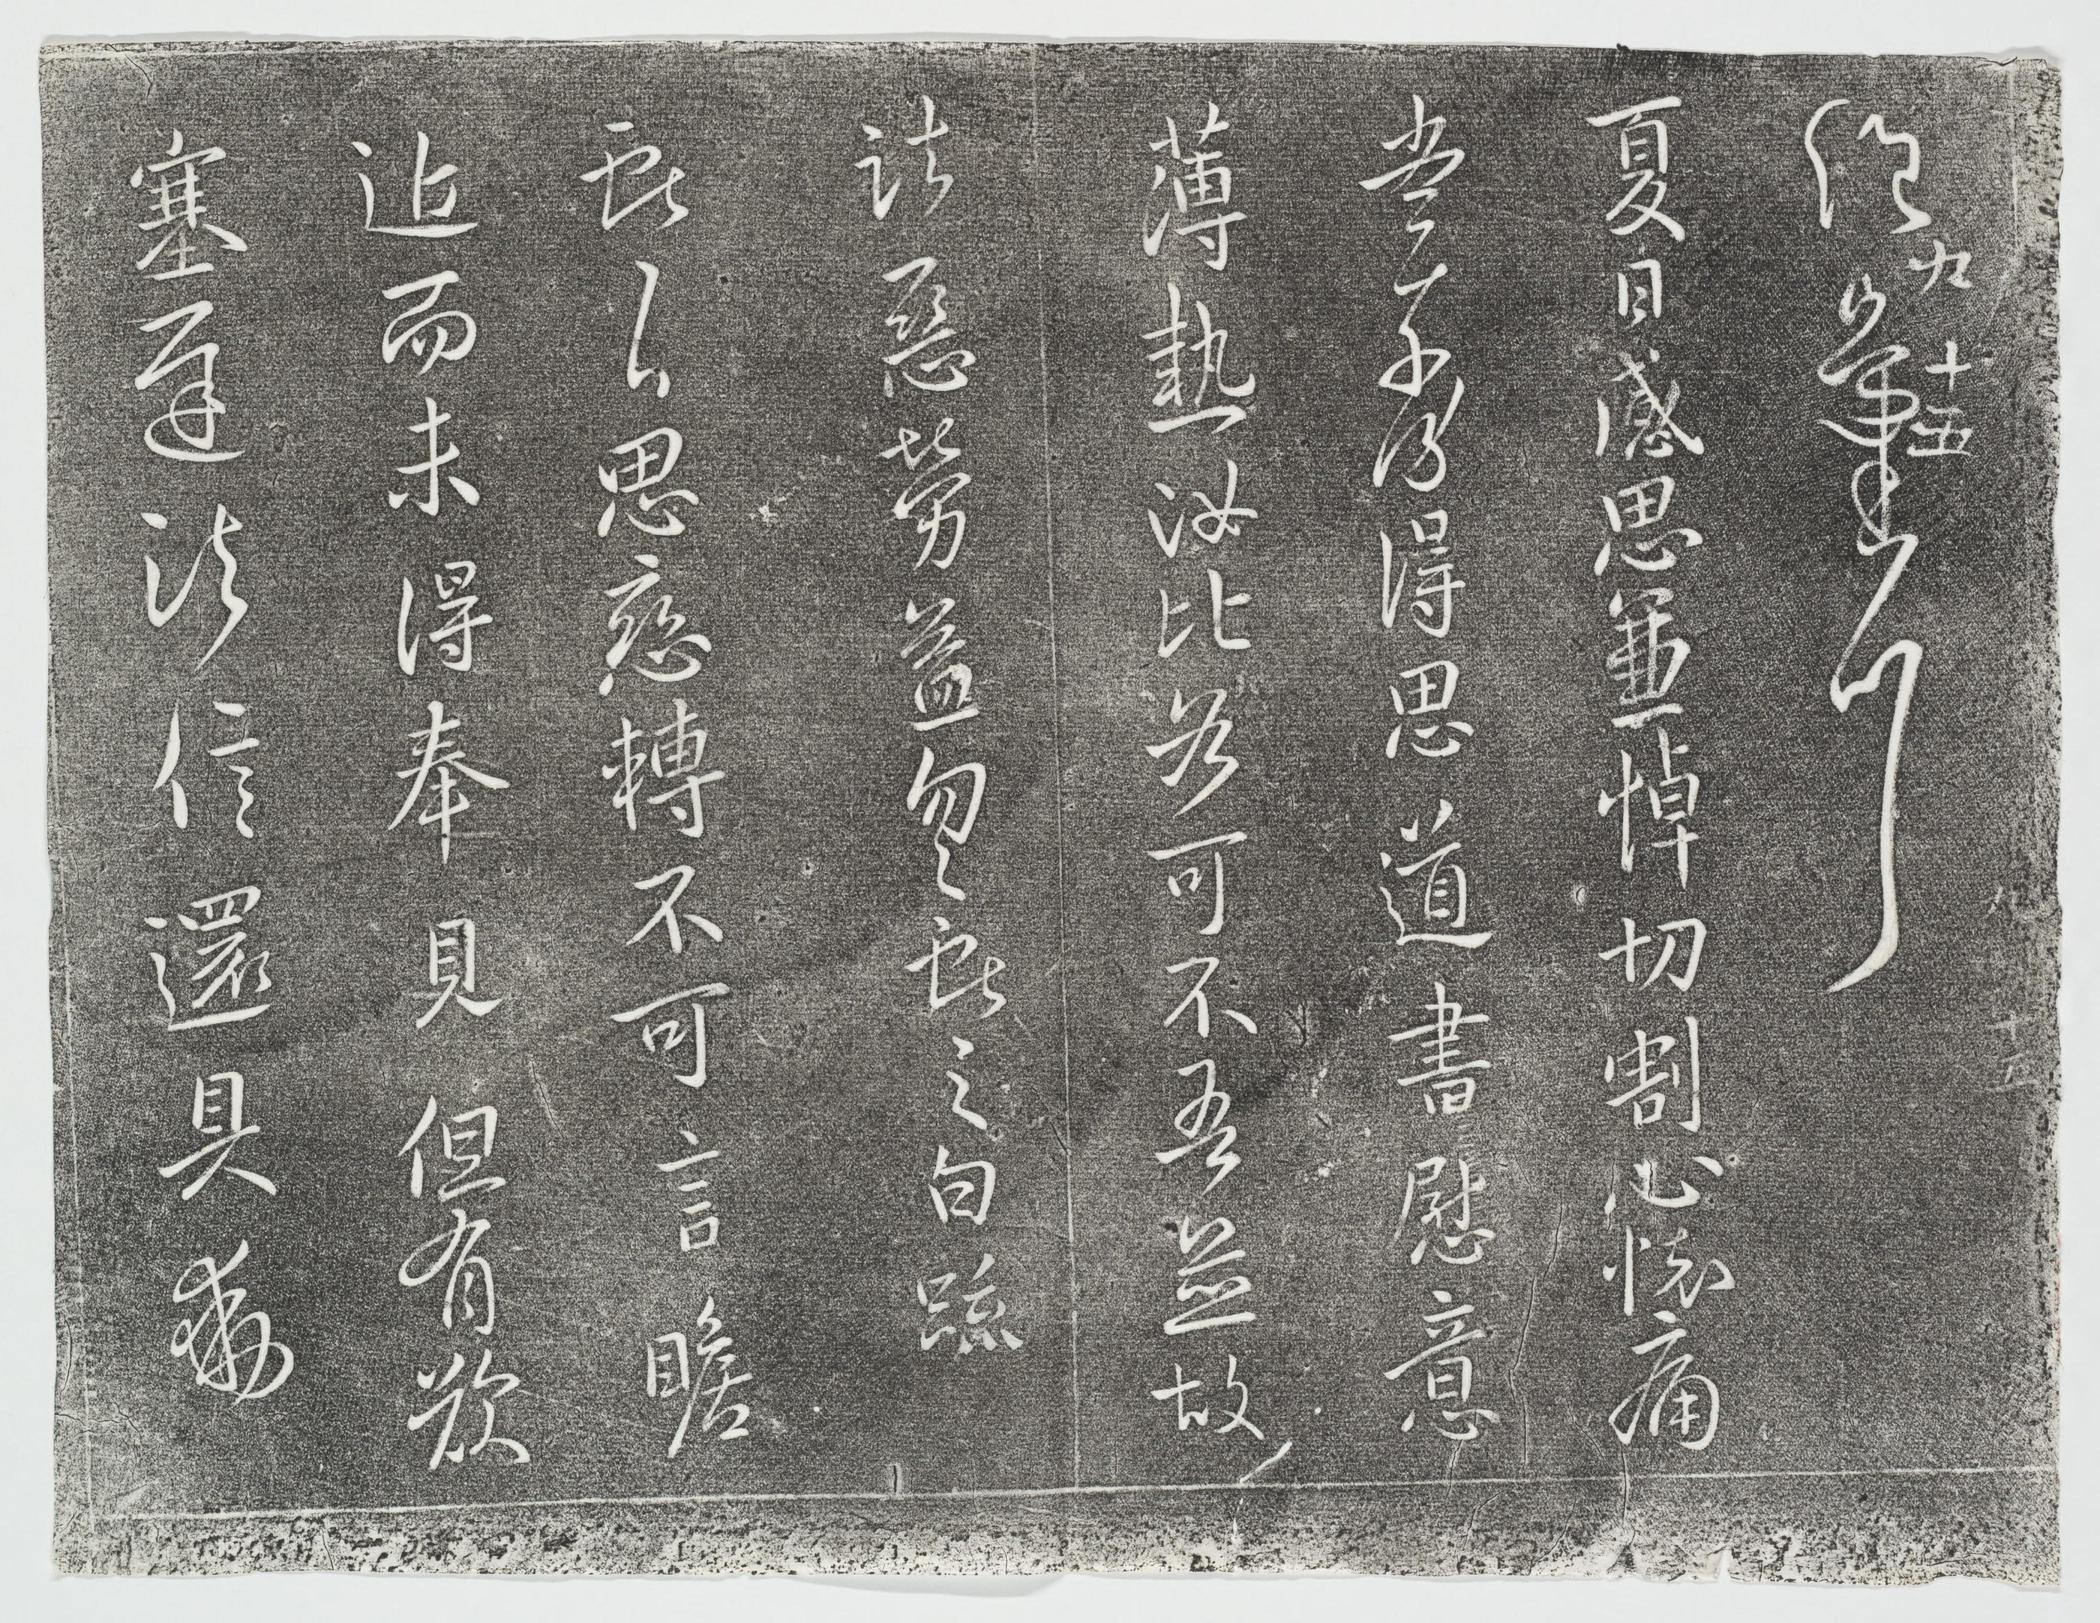 九
十五
夏日感思兼悼切割心懷痛
當奈何奈何得思道書慰意
薄熱汝比各可不吾並故
諸惡勞益勿勿獻之白疏
獻之思戀轉不可言瞻
近而未得奉見但有歎
塞遲諸信還具動